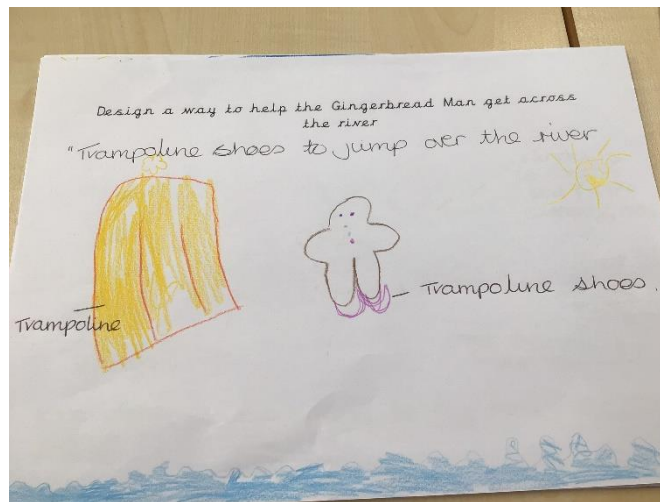 Design a way to help the Gingerbread Man get across
the river
"Trampoline shoes to jump over the river
Trampoline
Trampoline shoes.